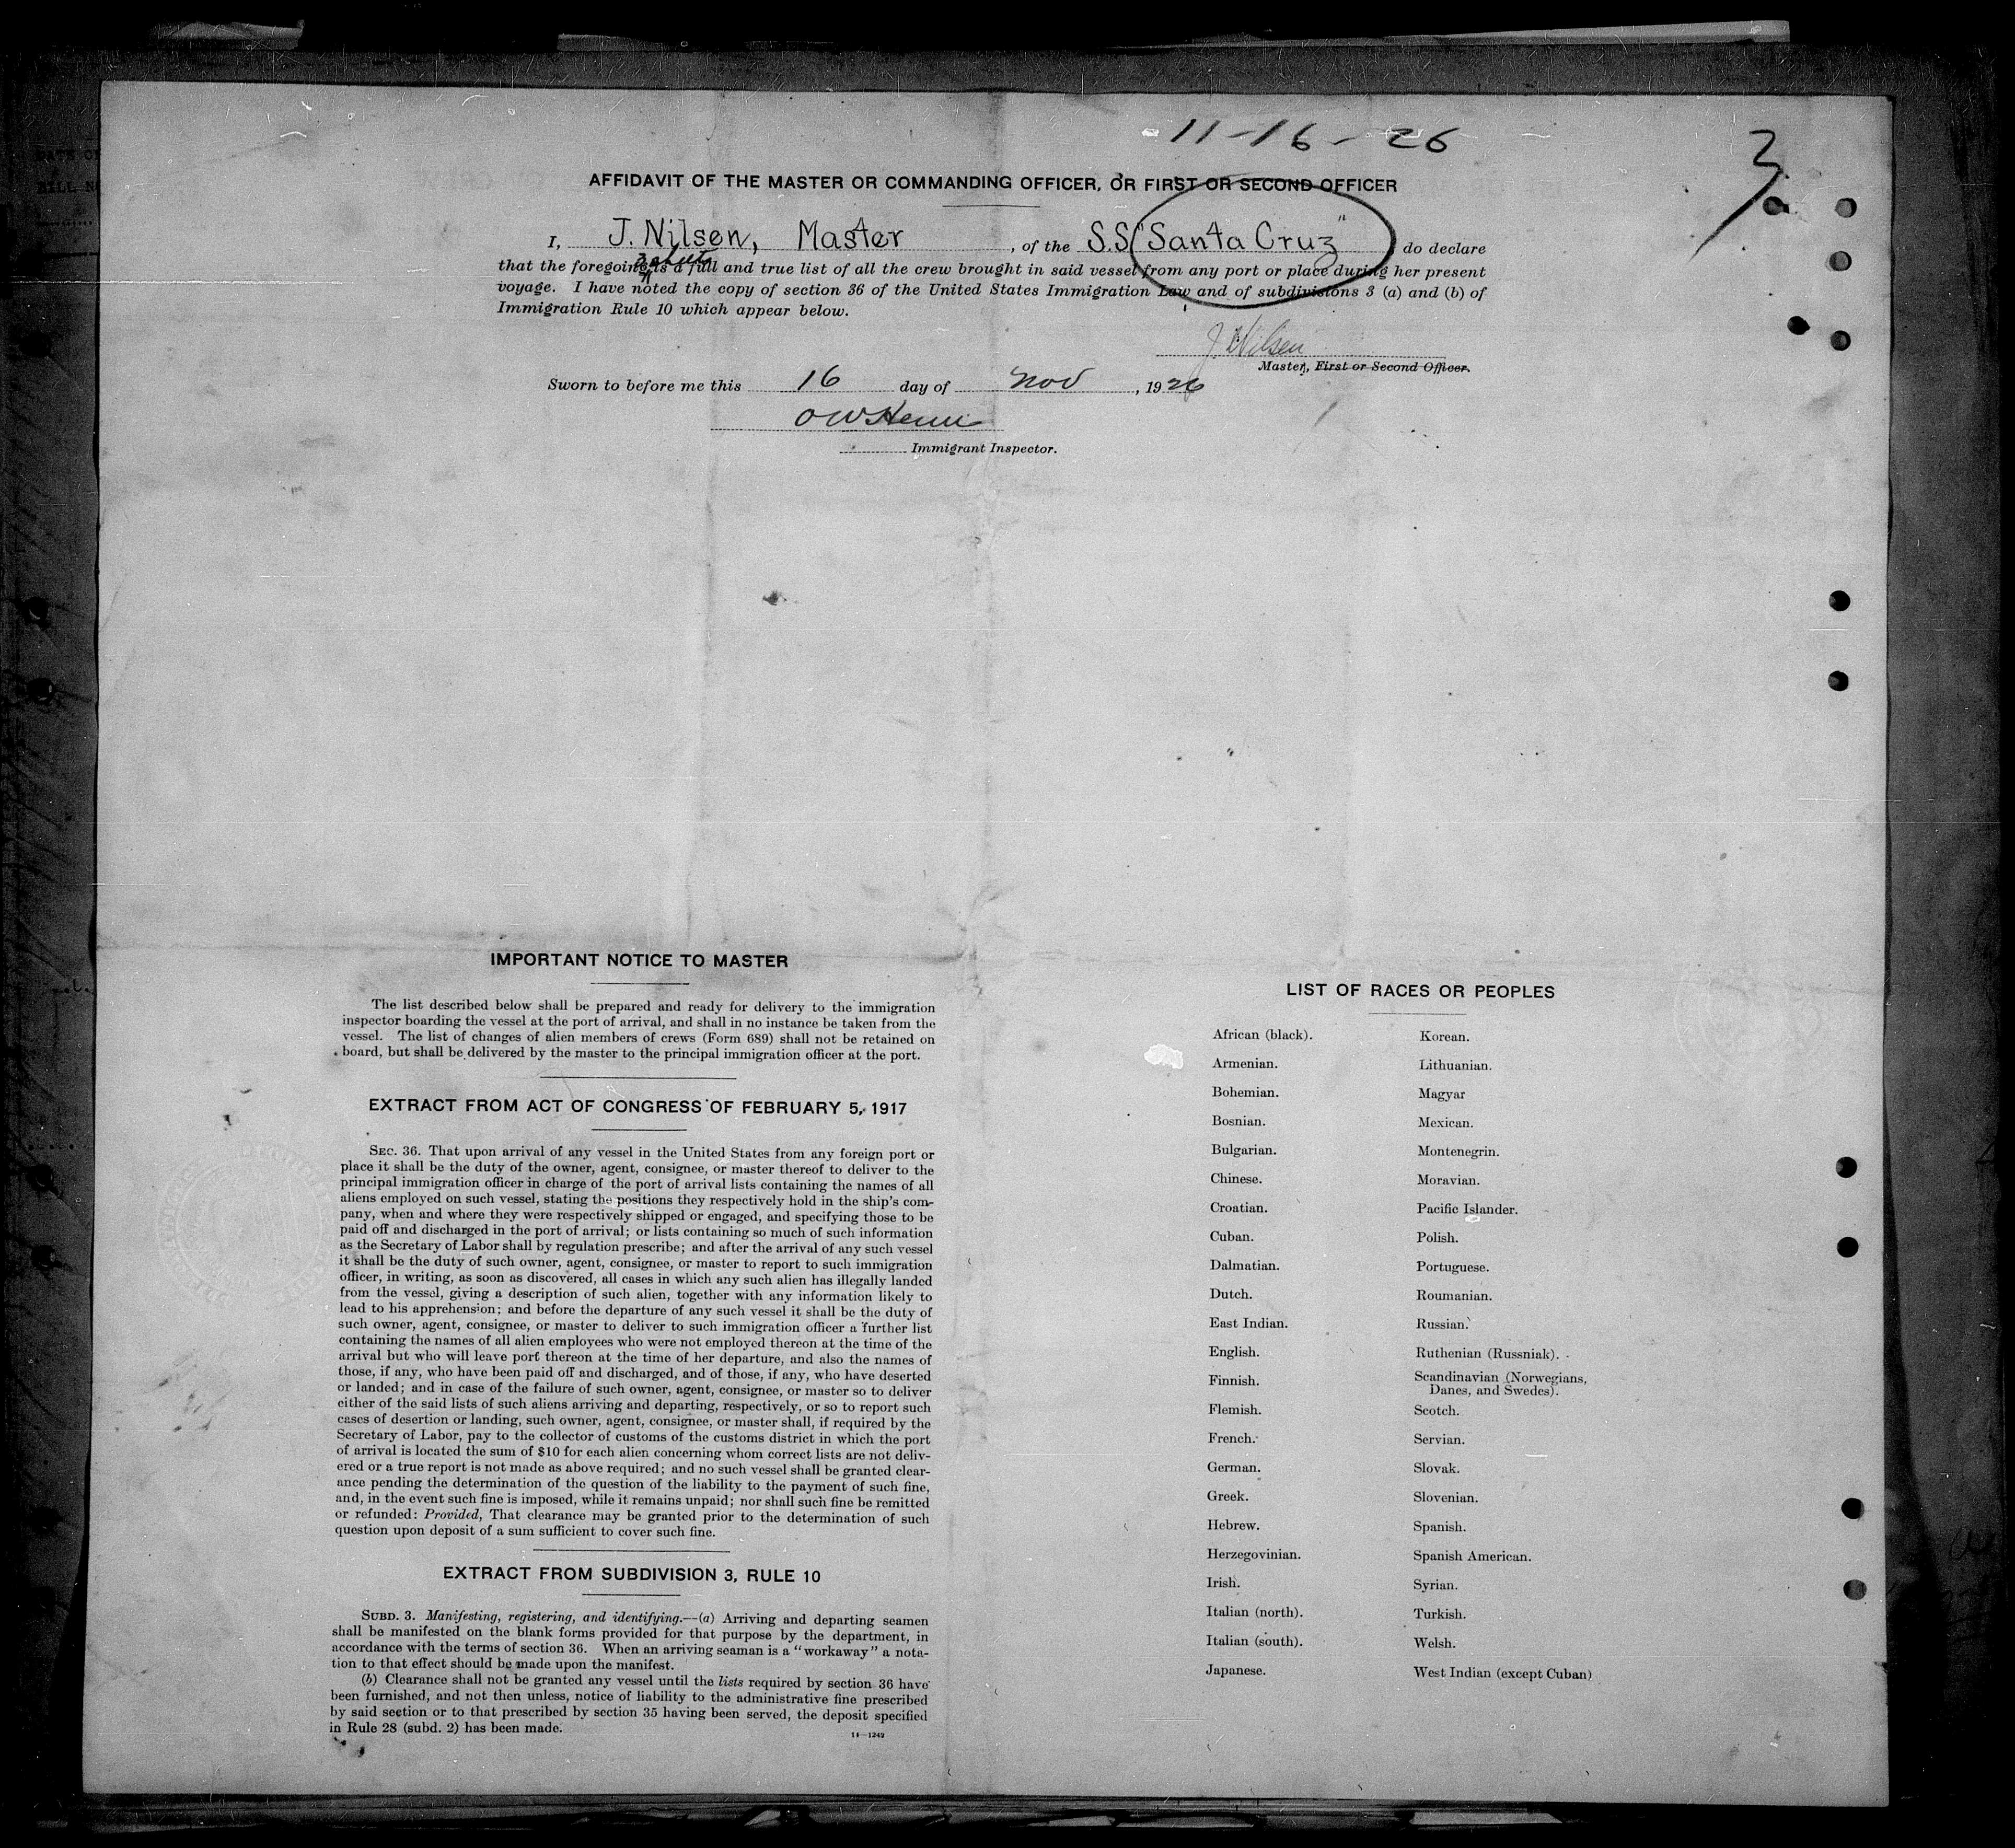 11-16-26
3
AFFIDAVIT OF THE MASTER OR COMMANDING OFFICER, OR FIRST OR SECOND OFFICER
I, J. Nilsen, Master, of the S.S. "Santa Cruz" do declare
that the foregoing is a full and true list of all the crew brought in said vessel from any port or place during her present
voyage. I have noted the copy of section 36 of the United States Immigration Law and of subdivisions 3 (a) and (b) of
Immigration Rule 10 which appear below.
J. Nilsen
Master, First or Second Officer.
Sworn to before me this 16 day of Nov, 1926
Immigrant Inspector.
IMPORTANT NOTICE TO MASTER
The list described below shall be prepared and ready for delivery to the immigration
inspector boarding the vessel at the port of arrival, and shall in no instance be taken from the
vessel. The list of changes of alien members of crews (Form 689) shall not be retained on
board, but shall be delivered by the master to the principal immigration officer at the port.
EXTRACT FROM ACT OF CONGRESS OF FEBRUARY 5, 1917
SEC. 36. That upon arrival of any vessel in the United States from any foreign port or
place it shall be the duty of the owner, agent, consignee, or master thereof to deliver to the
principal immigration officer in charge of the port of arrival lists containing the names of all
aliens employed on such vessel, stating the positions they respectively hold in the ship's com-
pany, when and where they were respectively shipped or engaged, and specifying those to be
paid off and discharged in the port of arrival; or lists containing so much of such information
as the Secretary of Labor shall by regulation prescribe; and after the arrival of any such vessel
it shall be the duty of such owner, agent, consignee, or master to report to such immigration
officer, in writing, as soon as discovered, all cases in which any such alien has illegally landed
from the vessel, giving a description of such alien, together with any information likely to
lead to his apprehension; and before the departure of any such vessel it shall be the duty of
such owner, agent, consignee, or master to deliver to such immigration officer a further list
containing the names of all alien employees who were not employed thereon at the time of the
arrival but who will leave port thereon at the time of her departure, and also the names of
those, if any, who have been paid off and discharged, and of those, if any, who have deserted
or landed; and in case of the failure of such owner, agent, consignee, or master so to deliver
either of the said lists of such aliens arriving and departing, respectively, or so to report such
cases of desertion or landing, such owner, agent, consignee, or master shall, if required by the
Secretary of Labor, pay to the collector of customs of the customs district in which the port
of arrival is located the sum of $10 for each alien concerning whom correct lists are not deliv-
ered or a true report is not made as above required; and no such vessel shall be granted clear-
ance pending the determination of the question of the liability to the payment of such fine,
and, in the event such fine is imposed, while it remains unpaid; nor shall such fine be remitted
or refunded: Provided, That clearance may be granted prior to the determination of such
question upon deposit of a sum sufficient to cover such fine.
EXTRACT FROM SUBDIVISION 3, RULE 10
SUBD. 3. Manifesting, registering, and identifying.—(a) Arriving and departing seamen
shall be manifested on the blank forms provided for that purpose by the department, in
accordance with the terms of section 36. When an arriving seaman is a "workaway" a nota-
tion to that effect should be made upon the manifest.
(b) Clearance shall not be granted any vessel until the lists required by section 36 have
been furnished, and not then unless, notice of liability to the administrative fine prescribed
by said section or to that prescribed by section 35 having been served, the deposit specified
in Rule 28 (subd. 2) has been made.
11—1242
LIST OF RACES OR PEOPLES
African (black).
Armenian.
Bohemian.
Bosnian.
Bulgarian.
Chinese.
Croatian.
Cuban.
Dalmatian.
Dutch.
East Indian.
English.
Finnish.
Flemish.
French.
German.
Greek.
Hebrew.
Herzegovinian.
Irish.
Italian (north).
Italian (south).
Japanese.
Korean.
Lithuanian.
Magyar
Mexican.
Montenegrin.
Moravian.
Pacific Islander.
Polish.
Portuguese.
Roumanian.
Russian.
Ruthenian (Russniak).
Scandinavian (Norwegians,
Danes, and Swedes).
Scotch.
Servian.
Slovak.
Slovenian.
Spanish.
Spanish American.
Syrian.
Turkish.
Welsh.
West Indian (except Cuban)